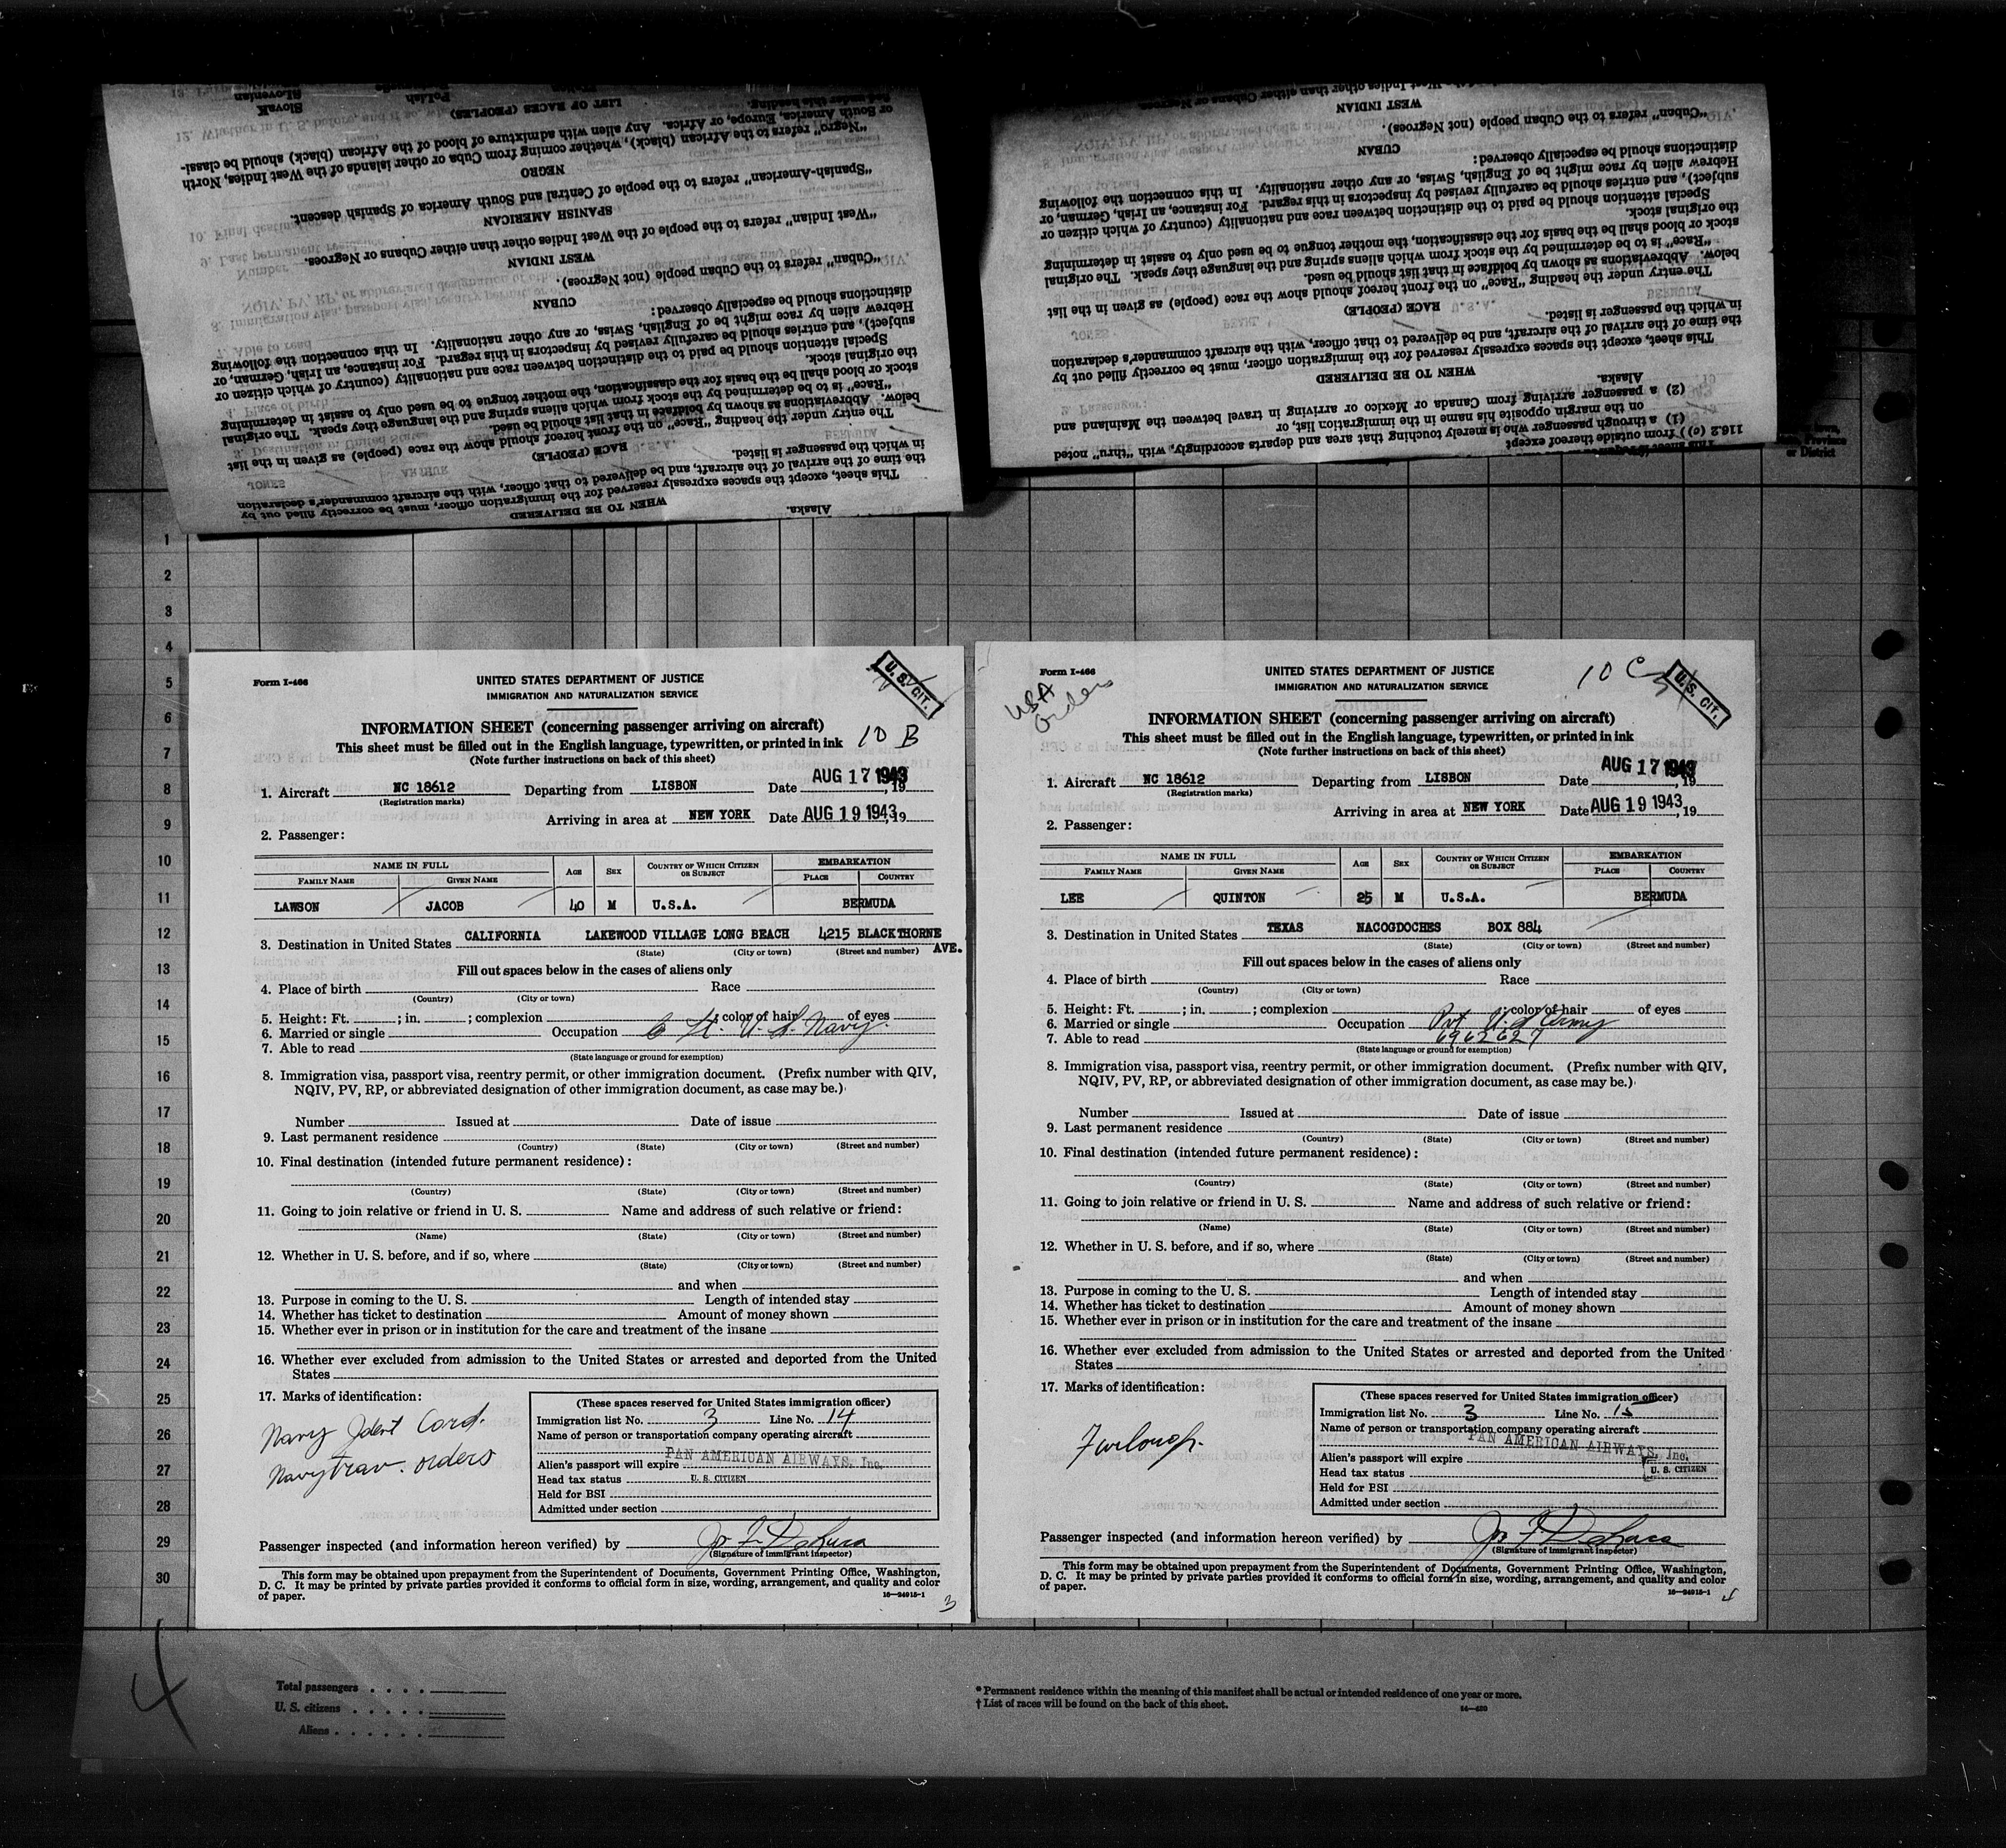 Slovak
Slovenian
Polish
LIST OF RACES (PEOPLES)
"Negro" refers to the African (black), whether coming from Cuba or other islands of the West Indies, North
or South America, Europe, or Africa. Any alien with admixture of blood of the African (black) should be classi-
NEGRO
"Spanish-American" refers to the people of Central and South America of Spanish descent.
SPANISH AMERICAN
"West Indian" refers to the people of the West Indies other than either Cubans or Negroes.
WEST INDIAN
"Cuban" refers to the Cuban people (not Negroes).
CUBAN
distinctions should be especially observed:
Hebrew alien by race might be of English, Swiss, or any other nationality. In this connection the following
subject), and entries should be carefully revised by inspectors in this regard. For instance, an Irish, German, or
Special attention should be paid to the distinction between race and nationality (country of which citizen or
the original stock.
stock or blood shall be the basis for the classification, the mother tongue to be used only to assist in determining
below. Abbreviations as shown by boldface in that list should be used. The original
"Race" is to be determined by the stock from which aliens spring and the language they speak.
The entry under the heading "Race" on the front hereof should show the race (people) as given in the list
RACE (PEOPLE)
in which the passenger is listed.
the time of the arrival of the aircraft, and be delivered to that officer, with the aircraft commander's declaration
This sheet, except the spaces expressly reserved for the immigration officer, must be correctly filled out by
WHEN TO BE DELIVERED
Alaska.
West Indies other than either Cubans or Negroes
WEST INDIAN
"Cuban" refers to the Cuban people (not Negroes).
CUBAN
distinctions should be especially observed:
Hebrew alien by race might be of English, Swiss, or any other nationality. In this connection the following
subject), and entries should be carefully revised by inspectors in this regard. For instance, an Irish, German, or
Special attention should be paid to the distinction between race and nationality (country of which citizen or
the original stock.
stock or blood shall be the basis for the classification, the mother tongue to be used only to assist in determining
"Race" is to be determined by the stock from which aliens spring and the language they speak. The original
below. Abbreviations as shown by boldface in that list should be used.
The entry under the heading "Race" on the front hereof should show the race (people) as given in the list
RACE (PEOPLE)
in which the passenger is listed.
the time of the arrival of the aircraft, and be delivered to that officer, with the aircraft commander's declaration
This sheet, except the spaces expressly reserved for the immigration officer, must be correctly filled out by
WHEN TO BE DELIVERED
Alaska.
(2) a passenger arriving from Canada or Mexico or arriving in travel between the Mainland and
on the margin opposite his name in the immigration list, or
(1) a through passenger who is merely touching that area and departs accordingly, with "thru" noted
116.2 (c)) from outside thereof except
Province
or District
1
2
3
4
5
6
7
8
9
10
11
12
13
14
15
16
17
18
19
20
21
22
23
24
25
26
27
28
29
30
Form I-466
UNITED STATES DEPARTMENT OF JUSTICE
IMMIGRATION AND NATURALIZATION SERVICE
U. S. CIT.
INFORMATION SHEET (concerning passenger arriving on aircraft)
This sheet must be filled out in the English language, typewritten, or printed in ink 10 B
(Note further instructions on back of this sheet)
1. Aircraft NC 18612 Departing from LISBON Date AUG 17 1943, 19
(Registration marks)
Arriving in area at NEW YORK Date AUG 19 1943, 19
2. Passenger:
NAME IN FULL Age Sex Country of Which Citizen or Subject EMBARKATION
Family Name Given Name Place Country
LAWSON JACOB 40 M U.S.A. BERMUDA
3. Destination in United States CALIFORNIA LAKEWOOD VILLAGE LONG BEACH 4215 BLACKTHORNE AVE.
(State) (City or town) (Street and number)
Fill out spaces below in the cases of aliens only
4. Place of birth Race
(Country) (City or town)
5. Height: Ft. ; in. ; complexion ; color of hair of eyes
6. Married or single Occupation Lt. U.S. Navy.
7. Able to read
(State language or ground for exemption)
8. Immigration visa, passport visa, reentry permit, or other immigration document. (Prefix number with QIV,
NQIV, PV, RP, or abbreviated designation of other immigration document, as case may be.)
Number Issued at Date of issue
9. Last permanent residence
(Country) (State) (City or town) (Street and number)
10. Final destination (intended future permanent residence):
(Country) (State) (City or town) (Street and number)
11. Going to join relative or friend in U. S. Name and address of such relative or friend:
(Name) (State) (City or town) (Street and number)
12. Whether in U. S. before, and if so, where
(State) (City or town) (Street and number)
and when
13. Purpose in coming to the U. S. Length of intended stay
14. Whether has ticket to destination Amount of money shown
15. Whether ever in prison or in institution for the care and treatment of the insane
16. Whether ever excluded from admission to the United States or arrested and deported from the United
States
17. Marks of identification:
Navy Ident Card.
Navy trav. orders
(These spaces reserved for United States immigration officer)
Immigration list No. 3 Line No. 14
Name of person or transportation company operating aircraft
PAN AMERICAN AIRWAYS, Inc.
Alien's passport will expire
Head tax status U. S. CITIZEN
Held for BSI
Admitted under section
Passenger inspected (and information hereon verified) by
(Signature of immigrant inspector)
This form may be obtained upon prepayment from the Superintendent of Documents, Government Printing Office, Washington,
D. C. It may be printed by private parties provided it conforms to official form in size, wording, arrangement, and quality and color
of paper.
16—24915-1
3
Form I-466
USA
Orders
UNITED STATES DEPARTMENT OF JUSTICE
IMMIGRATION AND NATURALIZATION SERVICE
10 C
U. S. CIT.
INFORMATION SHEET (concerning passenger arriving on aircraft)
This sheet must be filled out in the English language, typewritten, or printed in ink
(Note further instructions on back of this sheet)
1. Aircraft NC 18612 Departing from LISBON Date AUG 17 1943, 19
(Registration marks)
Arriving in area at NEW YORK Date AUG 19 1943, 19
2. Passenger:
NAME IN FULL Age Sex Country of Which Citizen or Subject EMBARKATION
Family Name Given Name Place Country
LEE QUINTON 25 M U.S.A. BERMUDA
3. Destination in United States TEXAS NACOGDOCHES BOX 884
(State) (City or town) (Street and number)
Fill out spaces below in the cases of aliens only
4. Place of birth Race
(Country) (City or town)
5. Height: Ft. ; in. ; complexion ; color of hair of eyes
6. Married or single Occupation Pvt U.S. Army
7. Able to read 6962627
(State language or ground for exemption)
8. Immigration visa, passport visa, reentry permit, or other immigration document. (Prefix number with QIV,
NQIV, PV, RP, or abbreviated designation of other immigration document, as case may be.)
Number Issued at Date of issue
9. Last permanent residence
(Country) (State) (City or town) (Street and number)
10. Final destination (intended future permanent residence):
(Country) (State) (City or town) (Street and number)
11. Going to join relative or friend in U. S. Name and address of such relative or friend:
(Name) (State) (City or town) (Street and number)
12. Whether in U. S. before, and if so, where
(State) (City or town) (Street and number)
and when
13. Purpose in coming to the U. S. Length of intended stay
14. Whether has ticket to destination Amount of money shown
15. Whether ever in prison or in institution for the care and treatment of the insane
16. Whether ever excluded from admission to the United States or arrested and deported from the United
States
17. Marks of identification:
Furlough.
(These spaces reserved for United States immigration officer)
Immigration list No. 3 Line No. 15
Name of person or transportation company operating aircraft
PAN AMERICAN AIRWAYS, Inc.
Alien's passport will expire
Head tax status U. S. CITIZEN
Held for BSI
Admitted under section
Passenger inspected (and information hereon verified) by
(Signature of immigrant inspector)
This form may be obtained upon prepayment from the Superintendent of Documents, Government Printing Office, Washington,
D. C. It may be printed by private parties provided it conforms to official form in size, wording, arrangement, and quality and color
of paper.
16—24915-1
4
4
Total passengers
U. S. citizens
Aliens
* Permanent residence within the meaning of this manifest shall be actual or intended residence of one year or more.
† List of races will be found on the back of this sheet.